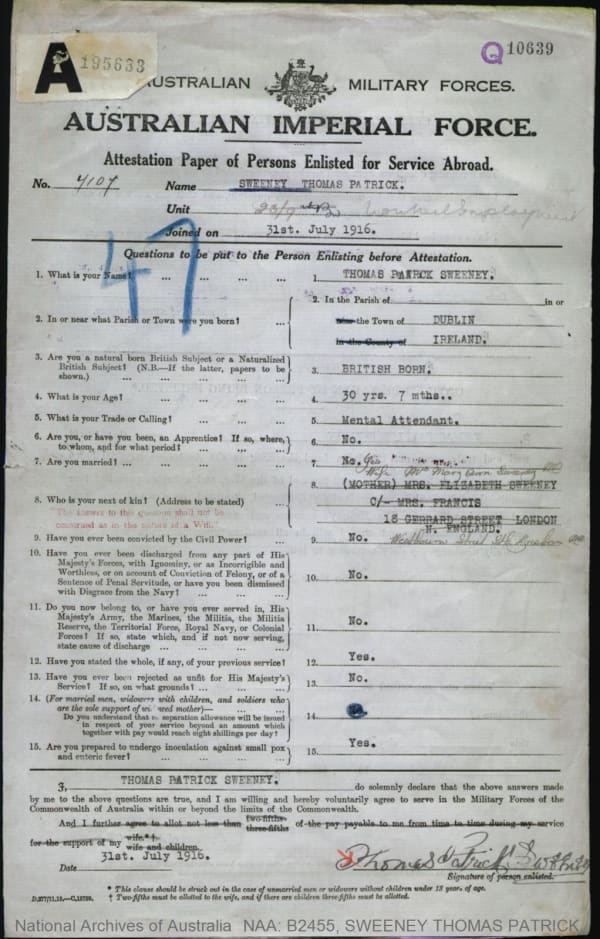 A 195633
Q 10639
AUSTRALIAN MILITARY FORCES.
AUSTRALIAN IMPERIAL FORCE.
Attestation Paper of Persons Enlisted for Service Abroad.
No. 4107 Name SWEENEY THOMAS PATRICK.
Unit 23/9
Joined on 31st. July 1916.
47
Questions to be put to the Person Enlisting before Attestation.
1. What is your Name? ... ... ... ... 1. THOMAS PATRICK SWEENEY.
2. In or near what Parish or Town were you born? ... 2. In the Parish of in or
near the Town of DUBLIN
in the County of IRELAND.
3. Are you a natural born British Subject or a Naturalized British Subject? (N.B.—If the latter, papers to be shown.) ... ... ... ... 3. BRITISH BORN.
4. What is your Age? ... ... ... ... 4. 30 yrs. 7 mths..
5. What is your Trade or Calling? ... ... ... 5. Mental Attendant.
6. Are you, or have you been, an Apprentice? If so, where, to whom, and for what period? ... ... ... 6. No.
7. Are you married? ... ... ... ... ... 7. No. Yes
Wife Mrs Mary Ann Sweeney
8. Who is your next of kin? (Address to be stated) ... 8. (MOTHER) MRS. ELIZABETH SWEENEY
C/- MRS. FRANCIS
18 GERRARD STREET LONDON
N. ENGLAND.
The answer to this question shall not be construed as in the nature of a Will.
9. Have you ever been convicted by the Civil Power? ... 9. No. Street
10. Have you ever been discharged from any part of His Majesty's Forces, with Ignominy, or as Incorrigible and Worthless, or on account of Conviction of Felony, or of a Sentence of Penal Servitude, or have you been dismissed with Disgrace from the Navy? ... ... ... 10. No.
11. Do you now belong to, or have you ever served in, His Majesty's Army, the Marines, the Militia, the Militia Reserve, the Territorial Force, Royal Navy, or Colonial Forces? If so, state which, and if not now serving, state cause of discharge ... ... ... ... 11. No.
12. Have you stated the whole, if any, of your previous service? 12. Yes.
13. Have you ever been rejected as unfit for His Majesty's Service? If so, on what grounds? ... ... ... 13. No.
14. (For married men, widowers with children, and soldiers who are the sole support of widowed mother)— ... ...
Do you understand that no separation allowance will be issued in respect of your service beyond an amount which together with pay would reach eight shillings per day? 14.
15. Are you prepared to undergo inoculation against small pox and enteric fever? ... ... ... ... 15. Yes.
I, THOMAS PATRICK SWEENEY. do solemnly declare that the above answers made
by me to the above questions are true, and I am willing and hereby voluntarily agree to serve in the Military Forces of the
Commonwealth of Australia within or beyond the limits of the Commonwealth.
And I further agree to allot not less than two-fifths three-fifths of the pay payable to me from time to time during my service
for the support of my wife.*† wife and children.
Date 31st. July 1916. Thomas Patrick Sweeney
Signature of person enlisted.
* This clause should be struck out in the case of unmarried men or widowers without children under 18 years of age.
† Two-fifths must be allotted to the wife, and if there are children three-fifths must be allotted.
National Archives of Australia NAA: B2455, SWEENEY THOMAS PATRICK